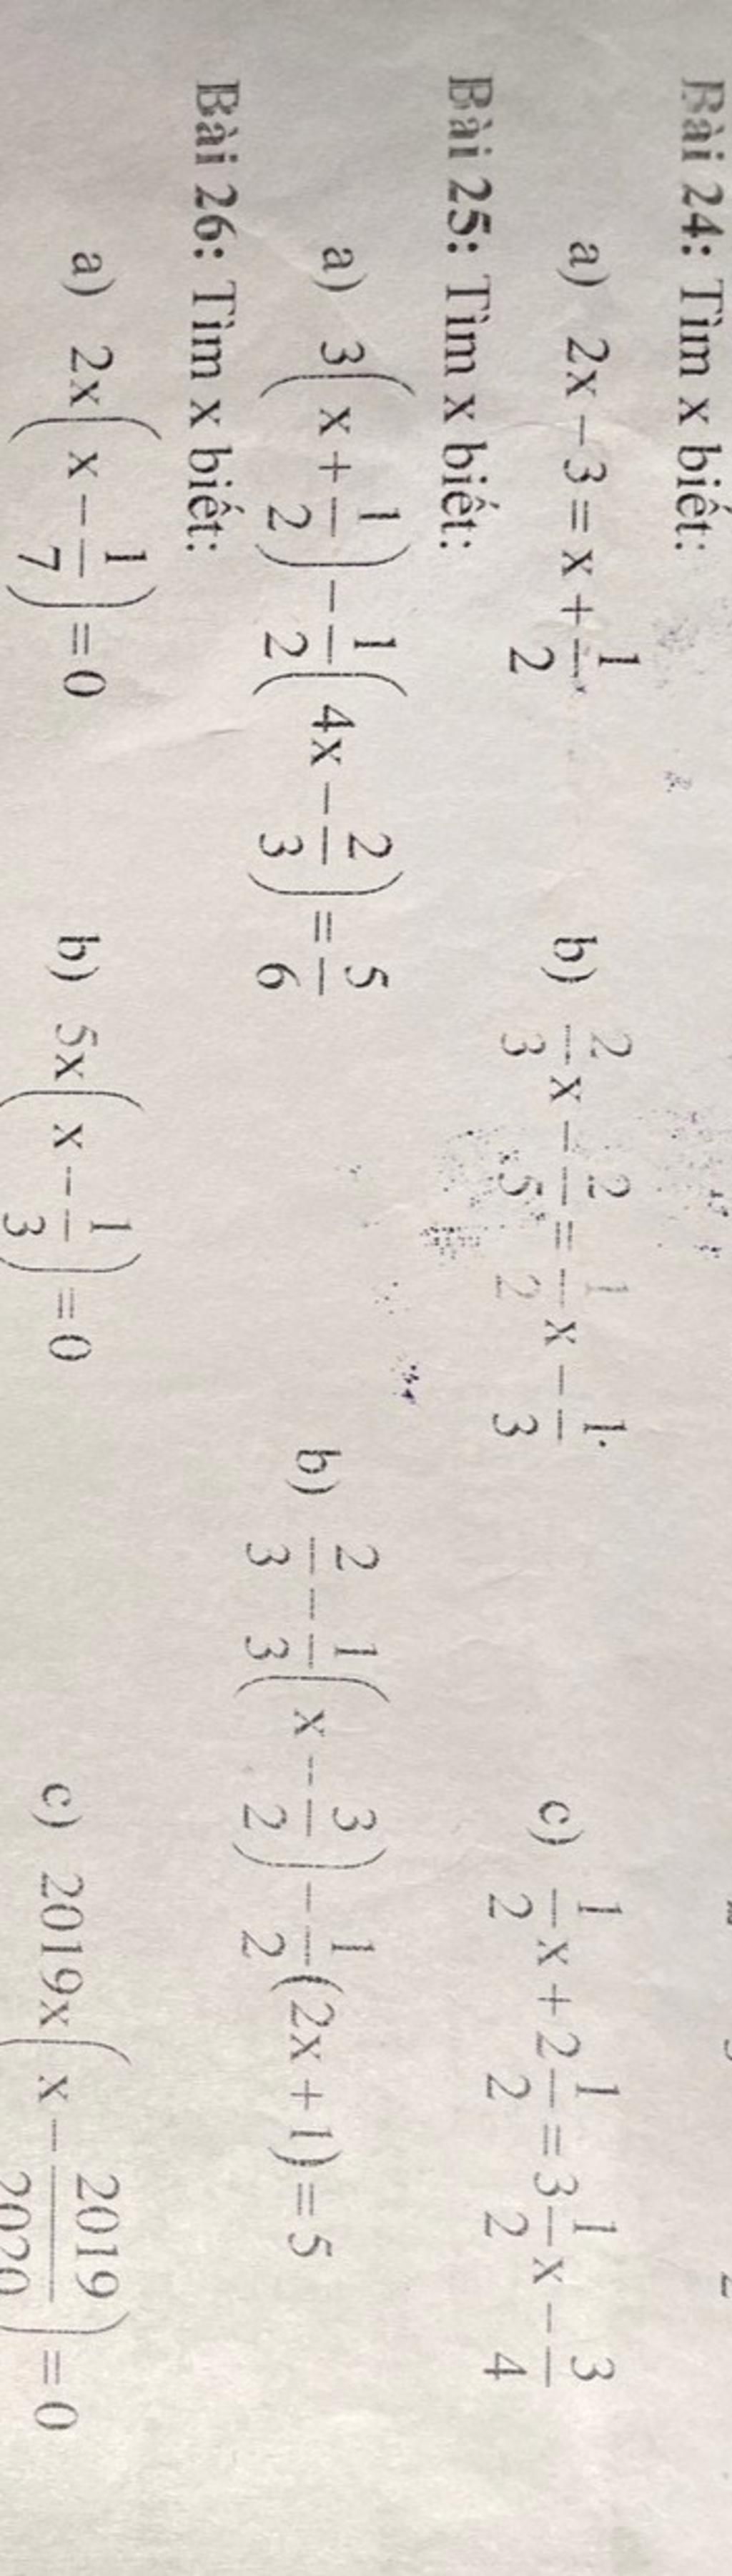 Bài 24: Tìm x biết:
a) 2x − 3 = x + 1/2 b) 2/3 x − 2/5 = 1/2 x − 1/3 c) 1/2 x + 2 1/2 = 3 1/2 x − 3/4
Bài 25: Tìm x biết:
a) 3(x + 1/2) − 1/2(4x − 2/3) = 5/6 b) 2/3 − 1/3(x − 3/2) − 1/2(2x + 1) = 5
Bài 26: Tìm x biết:
a) 2x(x − 1/7) = 0 b) 5x(x − 1/3) = 0 c) 2019x(x − 2019/2020) = 0